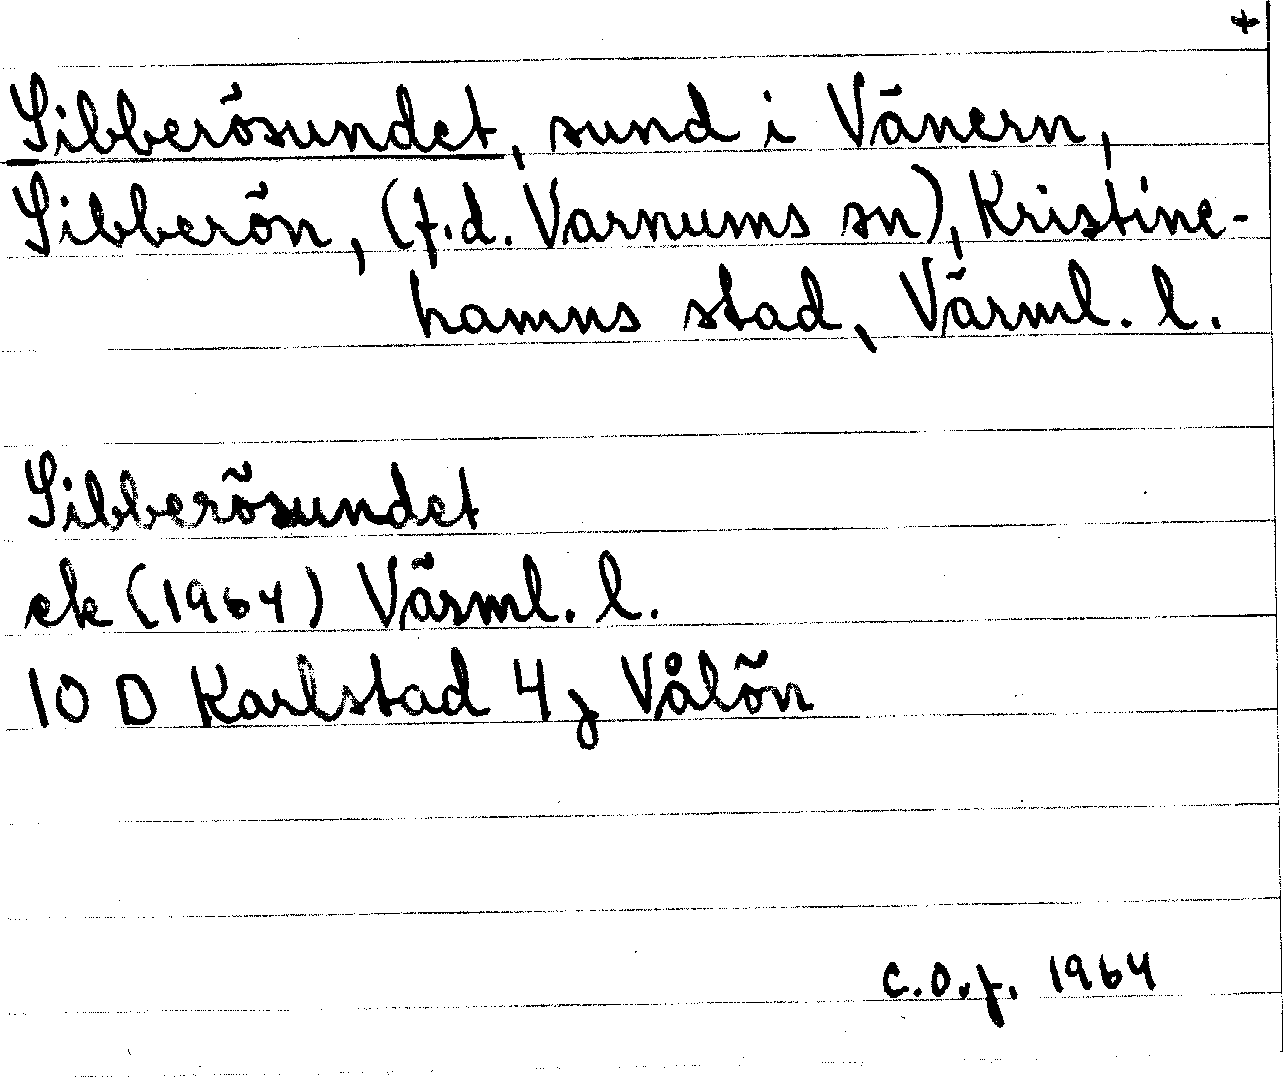 +
Sibberösundet, sund i Vänern,
Sibberön, (f.d. Varnums sn), Kristine-
hamns stad, Värml. l.
Sibberösundet
ek (1964) Värml. l.
10 D Karlstad 4j Vålön
C.O.f. 1964